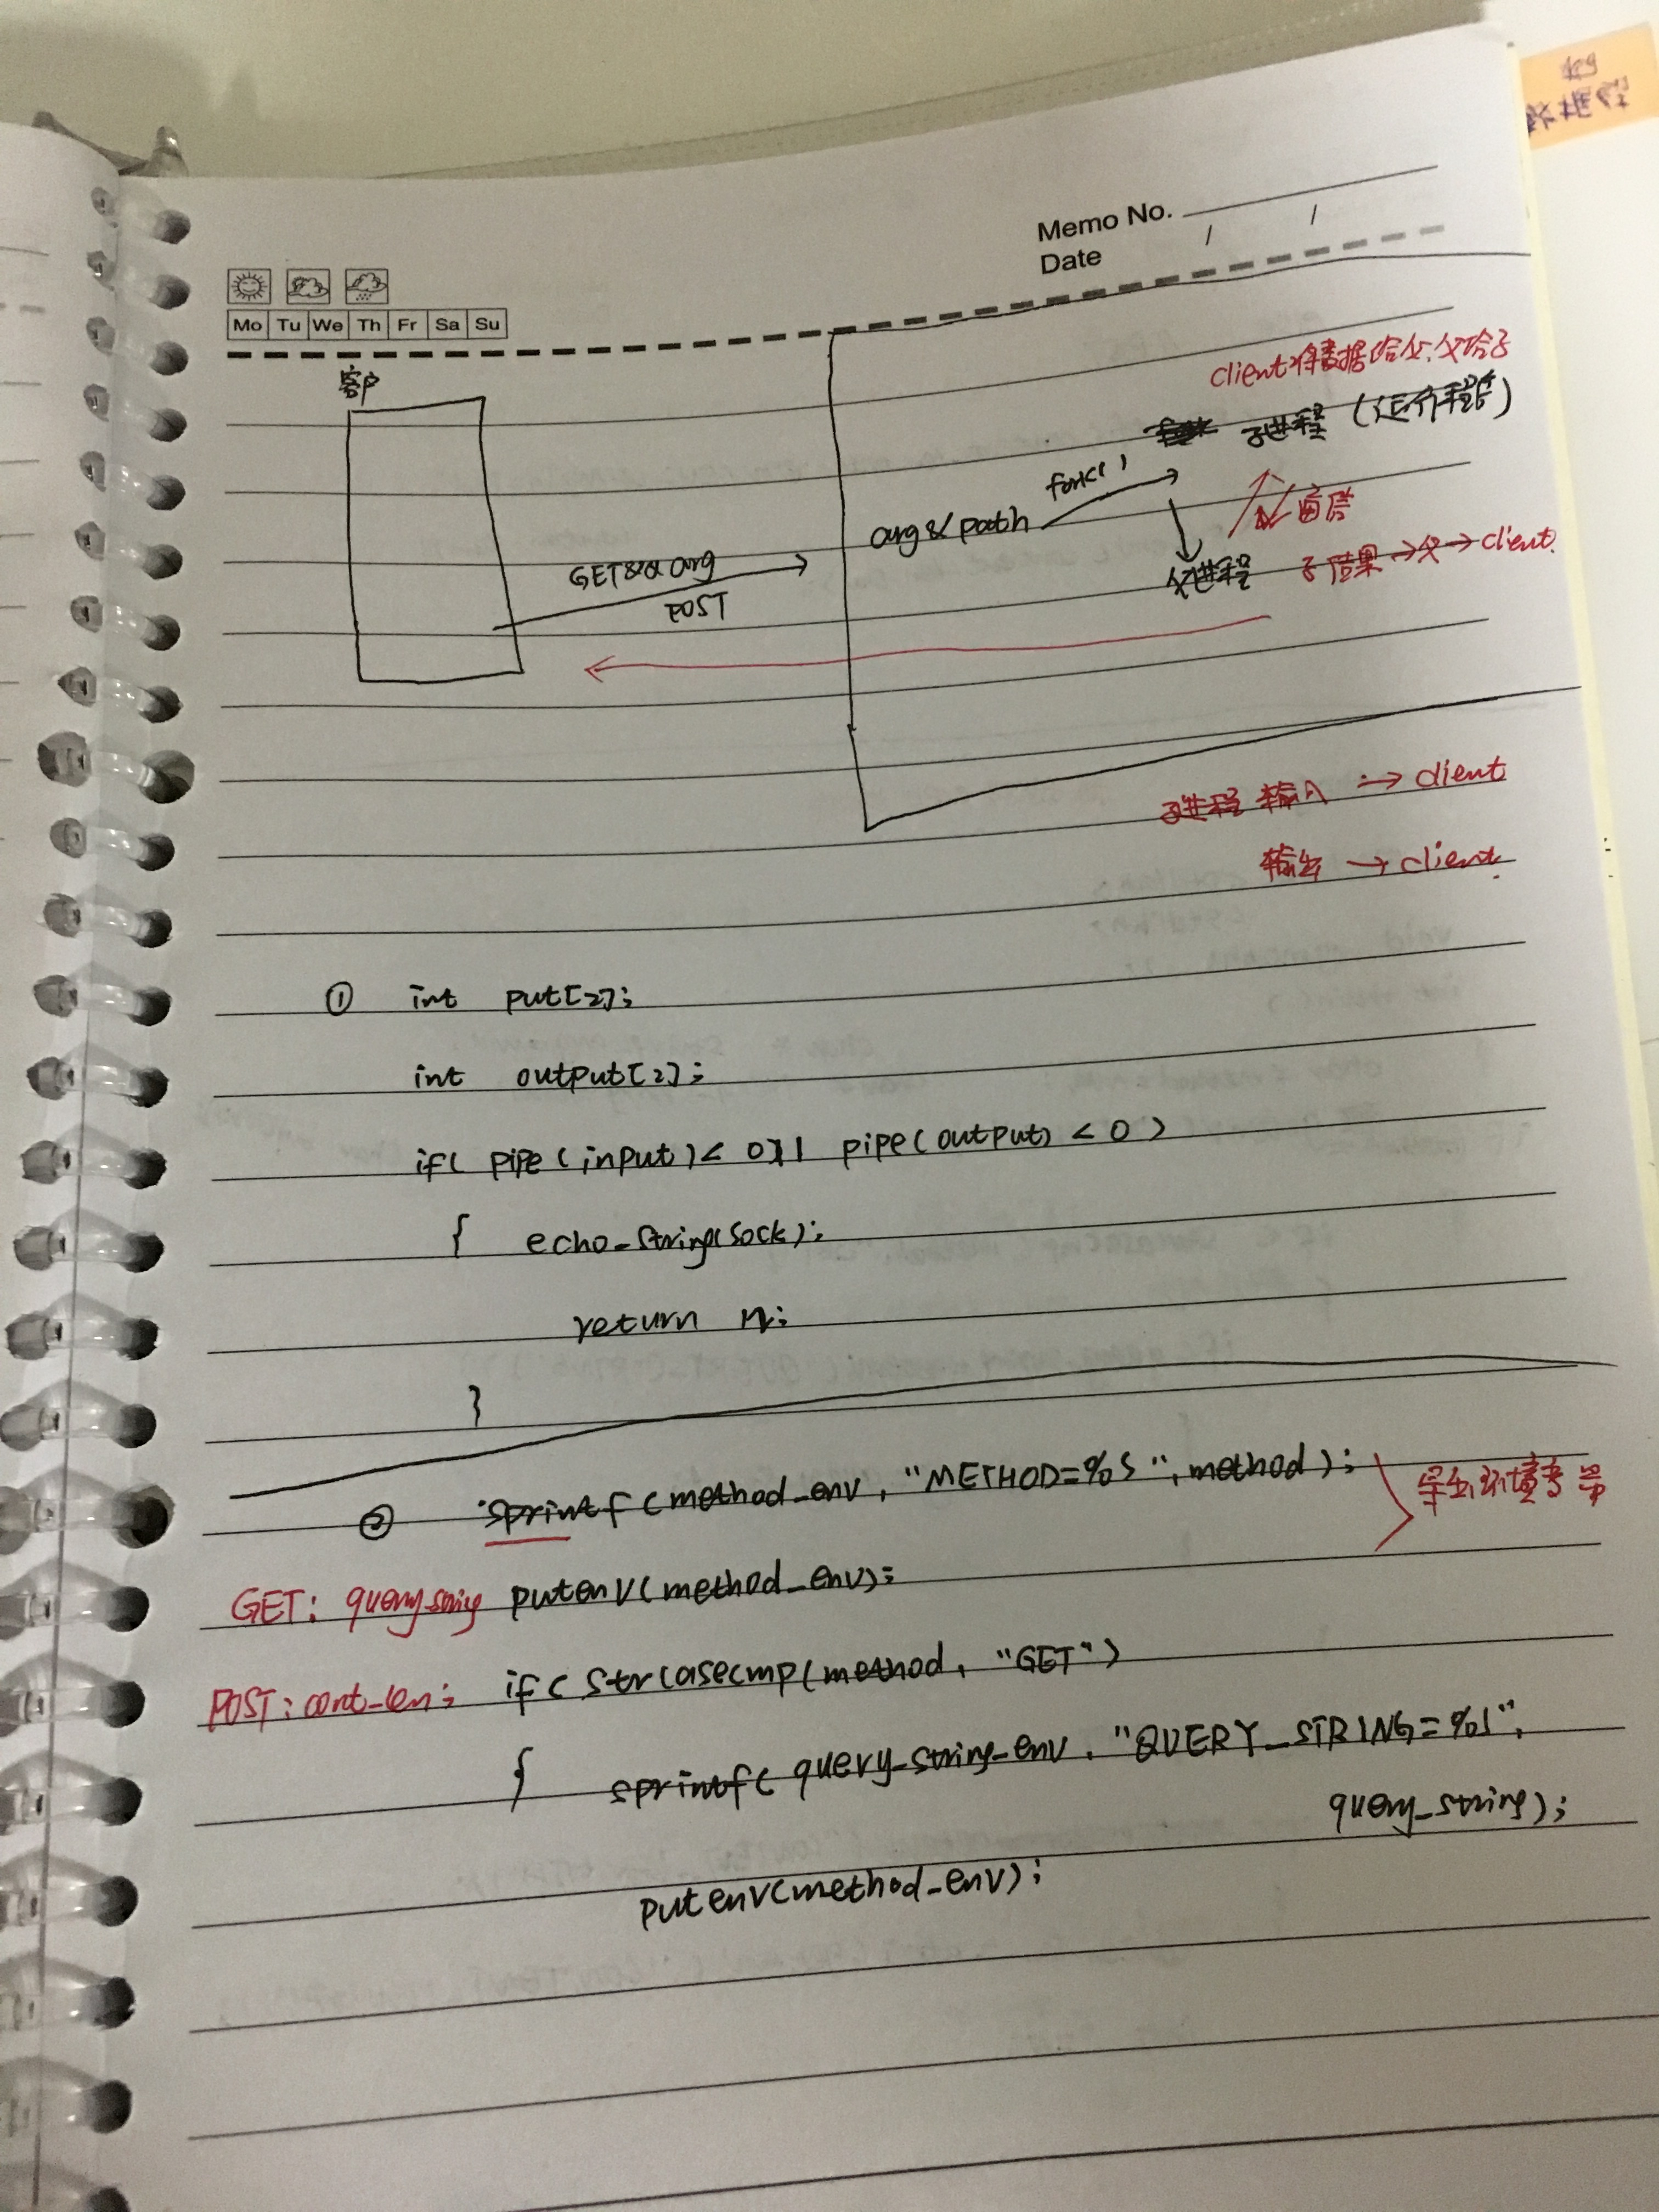 Memo No.
Date / /
Mo Tu We Th Fr Sa Su
客户
client将数据给父,父给子
子进程 (运行程序)
fork()
arg&path
管道
GET&&arg
POST
父进程 子结果→父→client.
子进程 输入 → client
输出 → client.
① int put[2];
int output[2];
if( pipe(input)< 0 || pipe(output) < 0 )
{ echo_string(sock);
return
}
② sprintf(method_env, "METHOD=%s", method);
GET: query string putenv(method_env);
POST: cont-len; if( strcasecmp(method, "GET")
{ sprintf( query_string_env, "QUERY_STRING=%s",
query_string);
putenv(method_env);